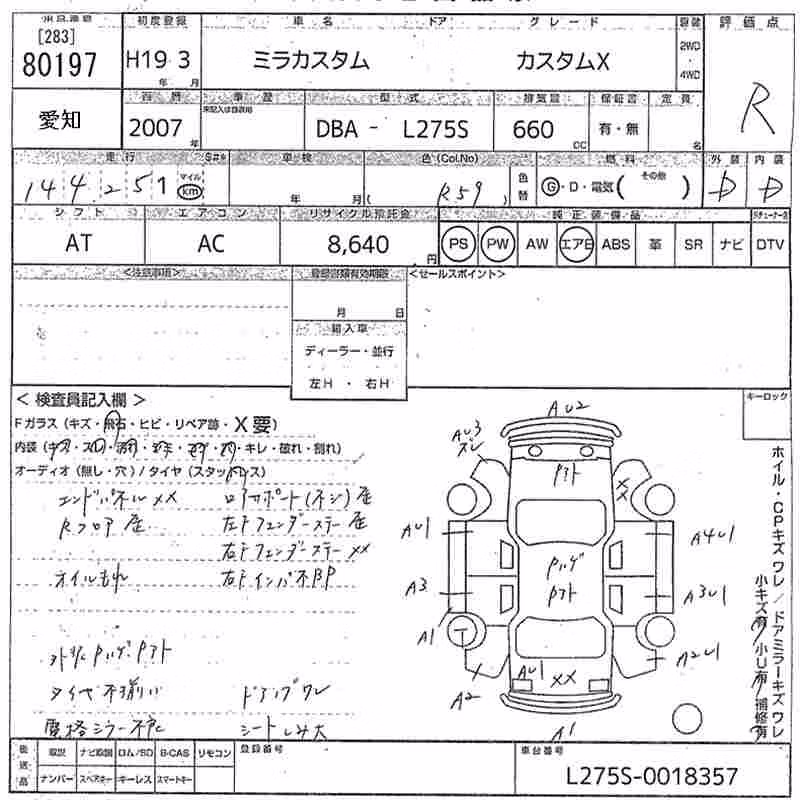 [283]
80197
初度登録
H19 3
年 月
車名 ドア グレード
ミラカスタム カスタムX
2WD
・
4WD
評価点
R
愛知
2007
年
車歴
型式
DBA - L275S
排気量
660
CC
保証書
有・無
定員
名
走行
144,251
マイル
km
車検
年 月
色(Col.No)
( R59 )
色替
燃料
G・D・電気( その他 )
外装
D
内装
D
シフト
AT
エアコン
AC
リサイクル預託金
8,640
円
純正装備品
PS PW AW エアB ABS 革 SR ナビ DTV
<注意事項>
登録書類有効期限
月 日
輸入車
ディーラー・並行
左H ・ 右H
<セールスポイント>
<検査員記入欄>
Fガラス(キズ・飛石・ヒビ・リペア跡・X要)
キレ・破れ・割れ)
オーディオ(無し・穴)/タイヤ(スタッドレス)
エンドパネルXX ロアサポート(ネジ)歪
Rフロア 歪 左Fフェンダーステー歪
右Fフェンダーステー XX
オイルもれ 右Fインパネ不BP
タイヤ不揃い ドアップワレ
シートしみ大
キーロック
ホイル・CPキズワレ/ドアミラーキズワレ
小キズ有 小U有 補修有
AU2
AU3
スレ
Pアト
XX
AU1
A4U1
Pハゲ
Pアト
A3
A3U1
A1
T
A2U1
AU1
XX
A2
A1
後送品
取説 ナビ取説 ロム/SD B-CAS リモコン
ナンバー スペアキー キーレス スマートキー
登録番号
車台番号
L275S-0018357